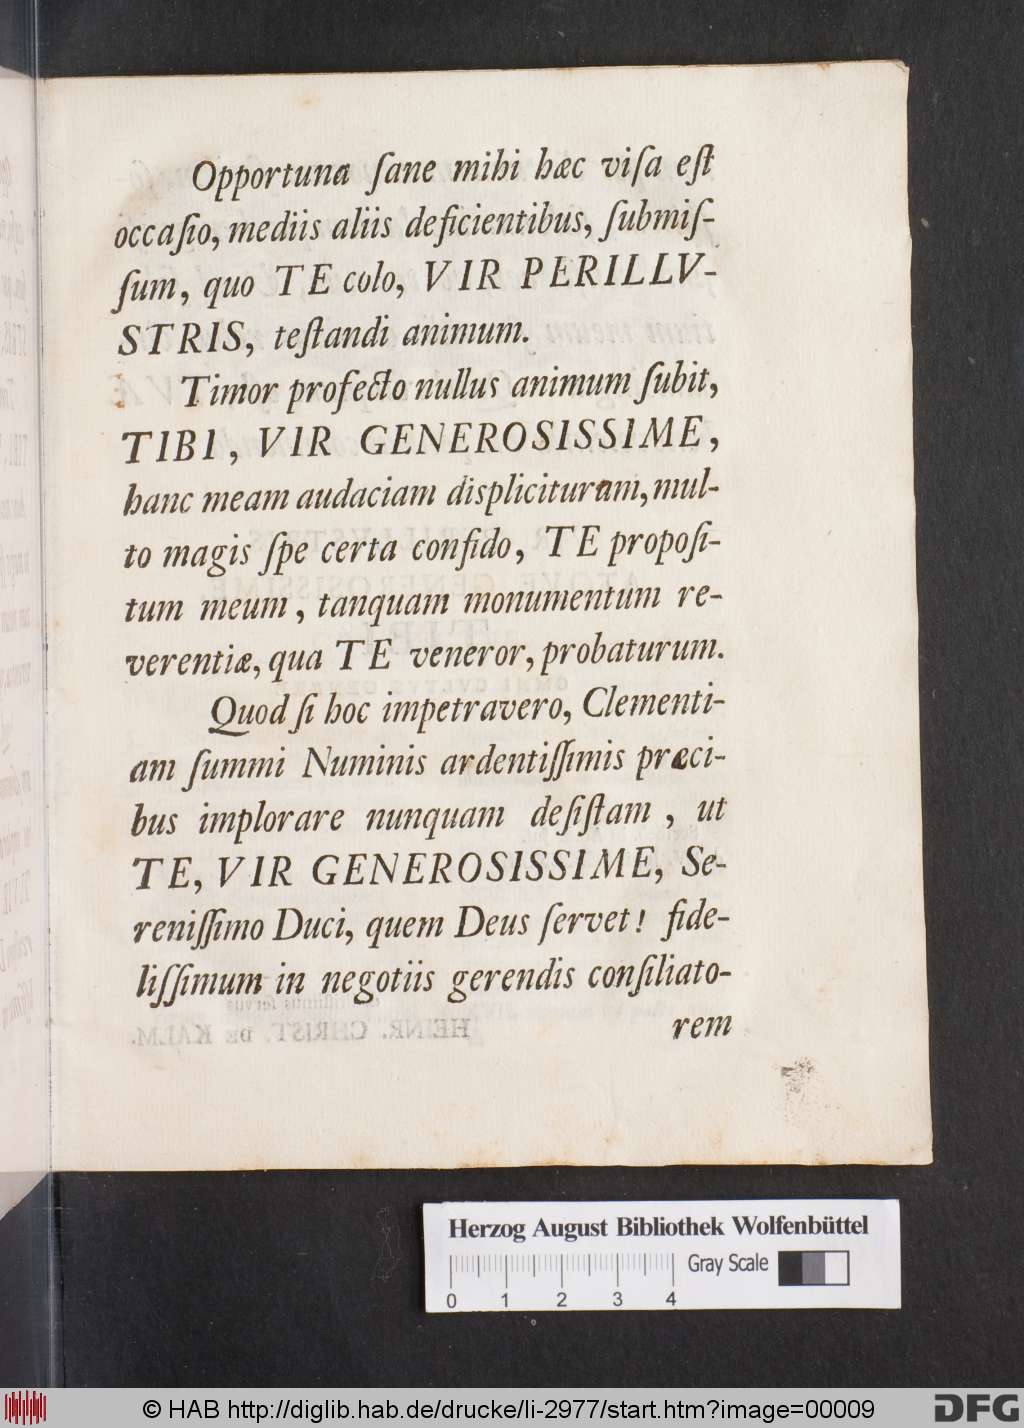 Opportuna ſane mihi hæc viſa eſt
occaſio, mediis aliis deficientibus, ſubmiſ-
ſum, quo TE colo, VIR PERILLV-
STRIS, teſtandi animum.
Timor profecto nullus animum ſubit,
TIBI, VIR GENEROSISSIME,
hanc meam audaciam displicituram, mul-
to magis ſpe certa confido, TE propoſi-
tum meum, tanquam monumentum re-
verentiæ, qua TE veneror, probaturum.
Quod ſi hoc impetravero, Clementi-
am ſummi Numinis ardentiſſimis præci-
bus implorare nunquam deſiſtam, ut
TE, VIR GENEROSISSIME, Se-
reniſſimo Duci, quem Deus ſervet! fide-
liſſimum in negotiis gerendis conſiliato-
rem
HEINR. CHRIST. DE KALM.
Herzog August Bibliothek Wolfenbüttel
Gray Scale
0 1 2 3 4
© HAB http://diglib.hab.de/drucke/li-2977/start.htm?image=00009
DFG